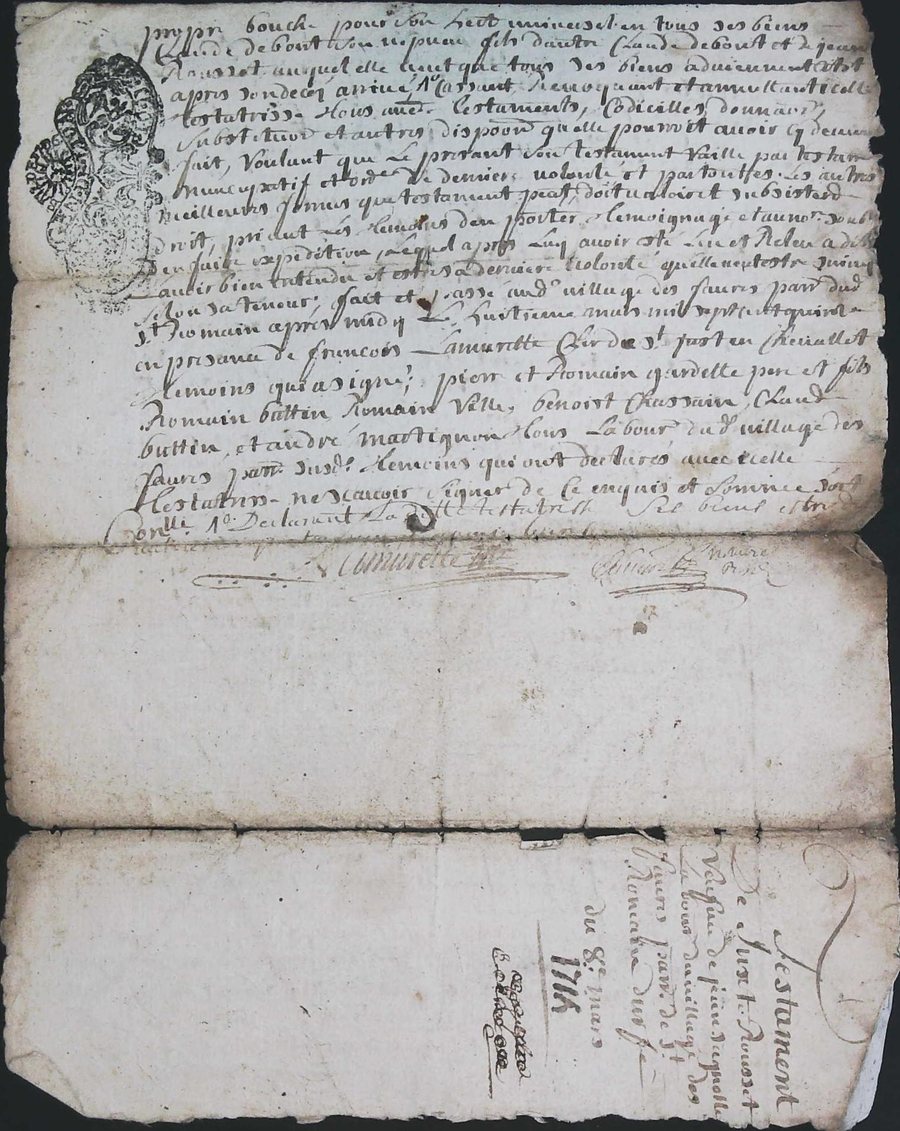 propre bouche pour son herit universel en tous ses biens
Claude debout son nepveu fils dautre Claude debout et de jeanne
Rousset auquel elle veut que tous ses biens adviennent
apres son deces arrivé Cassant, Revoquant et annullant icelle
testatrisse tous autres testaments, Codicilles donnaons
substituon et autres dispoon quelle pourroit avoir cy devant
fait, Voulant que Le present son testament Vaille par testam
nuncupatif et ord de derniere volonté et par toutes Les autres
meilleures formes que testament peut, doit valoir et subsister de
droit, priant Les temoins den porter temoignage et au no soubz
den faire expedition, Lequel apres Luy avoir esté Leu et Releu a dit
Lavoir bien entendu et estre sa derniere volonté quelle veut estre suivie
selon sa teneur, fait et passé aud village des faures parr dud
st Romain apres midy Le huitieme mars mil sept cent quinze
en presance de francois Lamurette Clerc de st just en Chevallet
temoins qui a signé, pierre et Romain gardelle pere et fils
Romain buttin, Romain Ville, benoist Chassain, Claude
buttin, et andré martignon tous Labour dud village des
faures parr susd temoins qui ont declarés avec icelle
testatrisse ne scavoir signer de Ce enquis et sommés
Declarant Laditte testatrisse ses biens estre
Lamurette
Notaire
Testament
De Just. Rousset
Vefve de jean sagnolle
Labour du village des
faures parr. de st
Romain durfé
du 8e. mars
1715